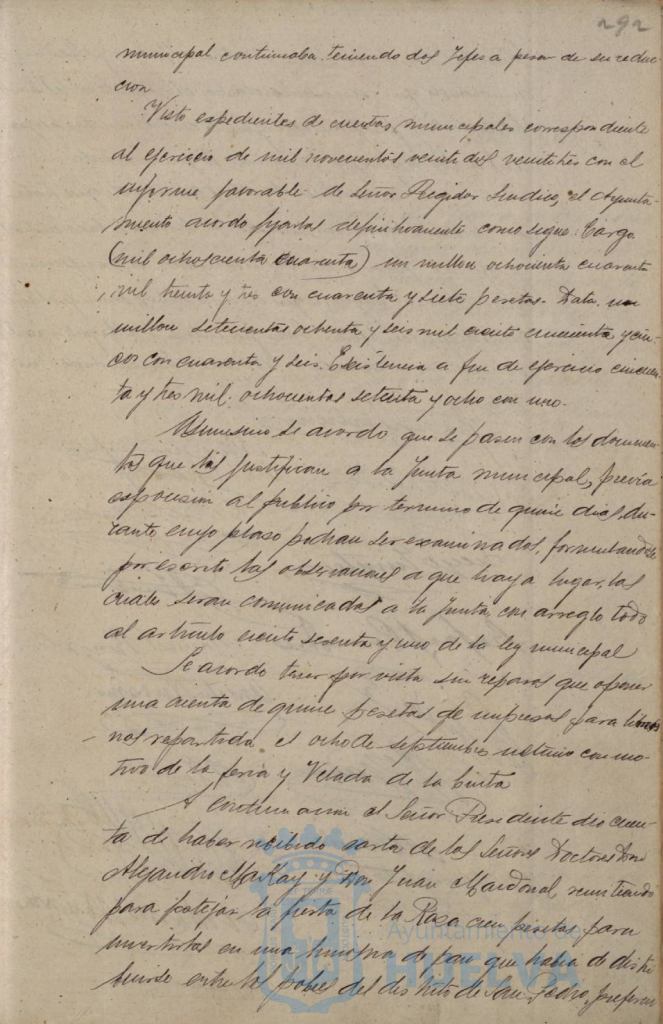 292
municipal continuaba teniendo dos Jefes a pesar de su reduc-
cion
Visto expedientes de cuentas municipales correspondiente
al ejercicio de mil novecientos veinte dos veintitres con el
informe favorable de Señor Regidor Sindico, el Ayunta-
miento acordo fijarlas definitivamente como sigue: Cargo
(mil ochocienta cuarenta) un millon ochocienta cuarenta
mil treinta y tres con cuarenta y siete pesetas. Data un
millon setecientas ochenta y seis mil ciento cincuenta y cin-
co con cuarenta y seis. Existencia a fin de ejercicio cincuen-
ta y tres mil ochocientas setenta y ocho con uno.
Asimismo se acordo que se pasen con los documen-
tos que las justifican a la Junta municipal, previa
exposicion al publico por termino de quince dias, du-
rante cuyo plazo podran ser examinados, formulandose
por escrito las observaciones a que haya lugar, las
cuales seran comunicadas a la Junta, con arreglo todo
al articulo ciento sesenta y uno de la ley municipal
Se acordo tener por vista sin reparos que oponer
una cuenta de quince pesetas de impresos para
repartida el ocho de septiembre ultimo con mo-
tivo de la feria y Velada de la Cinta
A continuacion el Señor Presidente dio cuen-
ta de haber recibido carta de los Señores Doctores Don
Alejandro MaKay y Don Juan Macdonal remitiendo
para festejar la fiesta de la Raza cien pesetas para
invertirlas en una limosna de pan que habia de distri-
buirse entre los pobres del distrito de San Pedro,
Ayuntamiento de
HUELVA